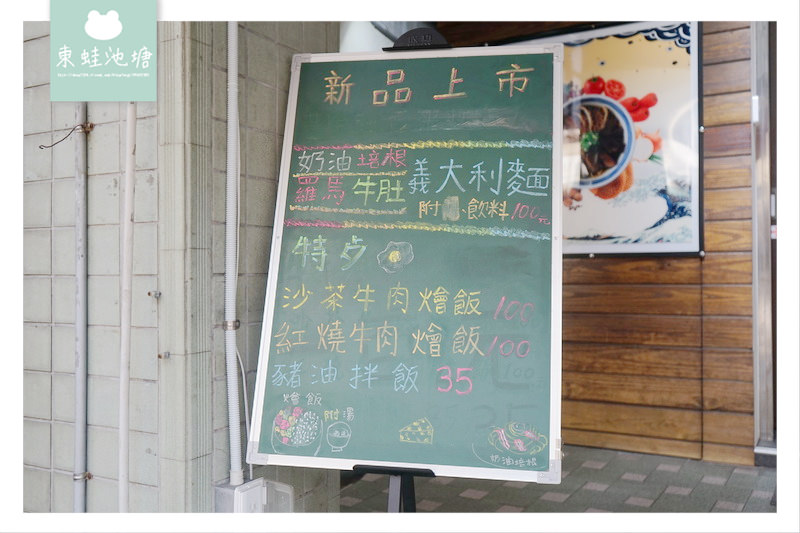 東蛙池塘
新品上市
奶油培根
羅馬牛肚
義大利麵
附 、飲料100元
特点
沙茶牛肉燴飯 100
紅燒牛肉燴飯 100
豬油拌飯 35
燴飯
附湯
奶油培根